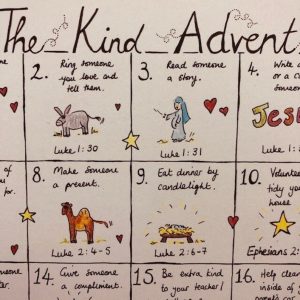 The Kind Advent
2. Ring someone you love and tell them.
Luke 1:30
3. Read someone a story.
Luke 1:31
4. Write a
or a c
someo
Jes
of
for.
8. Make someone a present.
Luke 2:4-5
9. Eat dinner by candlelight.
Luke 2:6-7
10. Volunteer
tidy you
house
Ephesians 2:
14. Give someone a compliment.
15. Be extra kind to your teacher/
16. Help clea
inside o